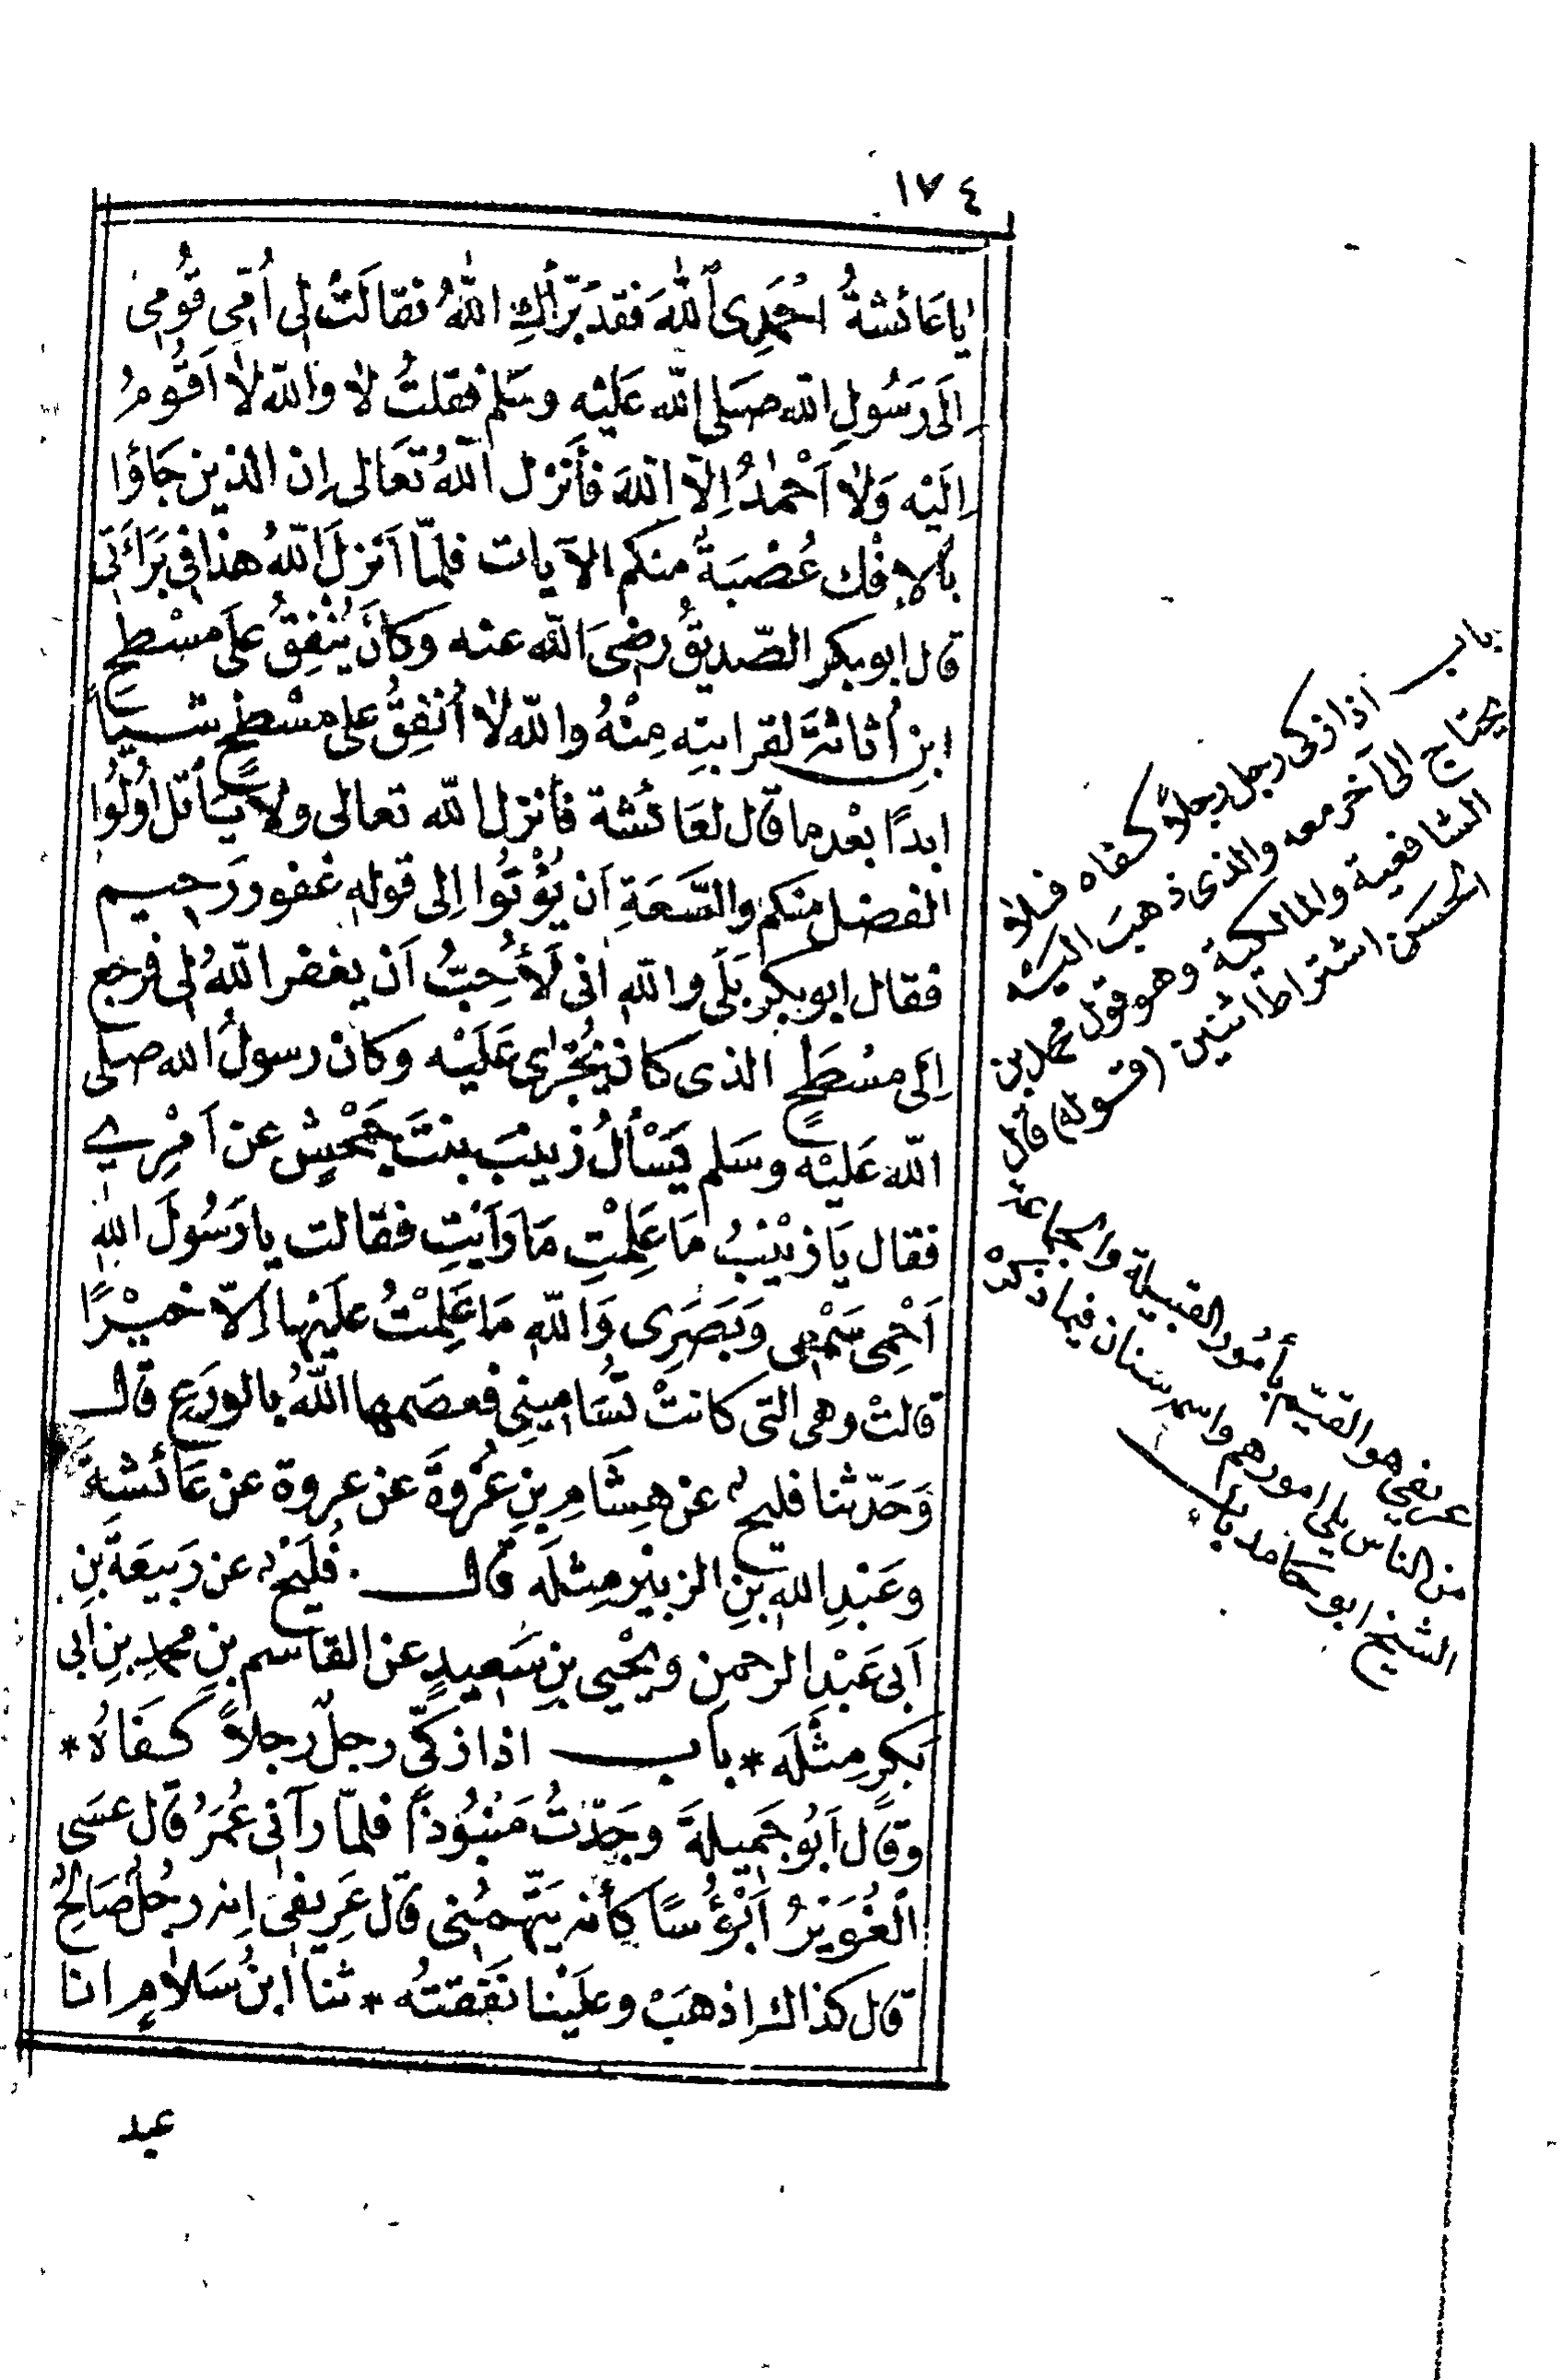 ١٧٤
يا عَائشةُ احْمَدِى اللهَ فقد بَرَّأكِ اللهُ فقالَتْ لى أُمّى قُومِى
اِلَى رَسُولِ الله صَلى الله عَليْه وسَلم فقلتُ لا والله لا اَقُومُ
اِلَيْه وَلا اَحْمَدُ اِلّا اللهَ فأَنزل اللهُ تعَالى اِن الذين جَاؤا
بالإفْك عُصْبَةٌ منكم الآيات فلمّا اَنزلَ اللهُ هذا فى بَرَاءَتى
قال ابو بكر الصّديقُ رضىَ الله عنه وكانَ يُنْفِقُ علَى مسْطحِ
ابنِ أُثاثةَ لقرابتِه مِنْهُ والله لا اُنْفِقُ على مسْطحٍ شيأً
ابدًا بعْد ما قال لعَائشة فأنزل الله تعالى ولا يَأتَل اُولُوا
الفضل منكم والسَّعَةِ اَن يُؤْتُوا اِلى قوله غفور رَحيم
فقال ابو بكر بَلَى والله انى لَأُحِبُّ اَن يغفر اللهُ لى فرجع
اِلَى مسْطَحٍ الذى كان يُجْرِى عَلَيْه وكان رسولُ الله صلى
الله عَليْه وسَلم يَسْألُ زينبَ بنتَ جَحْشٍ عن اَمْرِي
فقال يَا زيْنبُ مَا عَلِمْتِ مَا رَاَيْتِ فقالت يا رَسُولَ اللهِ
اَحْمِى سَمْعِى وَبَصَرِى وَاللهِ مَا عَلِمْتُ عليْها اِلّا خيْرًا
قالتْ وهى التى كانتْ تُسَامِينِى فعصَمها اللهُ بالورَعِ قال
وَحَدّثنا فليح عن هِشَامِ بنِ عُرْوَةَ عن عروة عن عَائشةَ
وعَبْدِ اللهِ بنِ الزبيْر مِثلَه قال فُلَيْح عن رَبيعَةَ بنِ
اَبى عَبْدِ الرحمن ويَحْيى بنِ سَعيدٍ عن القاسم بنِ محمدِ بنِ ابى
بَكرٍ مِثْلَه * باب اذا زكّى رجلٌ رجلاً كفَاهُ *
وقال اَبُو جَمِيلَةَ وجَدْتُ مَنْبُوذًا فلمّا رآنى عُمَرُ قال عسَى
الْغُوَيْرُ اَبْؤُسًا كأنه يَتَّهِمُنى قال عَرِيفى اِنه رجُلٌ صَالِحٌ
قال كذاك اذهبْ وعليْنا نفَقتُه * ثنا ابنُ سَلامٍ انا
عبد
باب اذا زكى رجل رجلاً كفاه فلا
يحتاج الى آخر معه والذى ذهبَ اليه
الشافعية والمالكية وهو قول محمد بن
الحسن اشتراط اثنين (قوله) قال
عريفى هو القيّم بأمُور القبيلة والجماعة
من الناس يلى امورهم واسمه سنان فيما ذكره
الشيخ ابو حامد باب